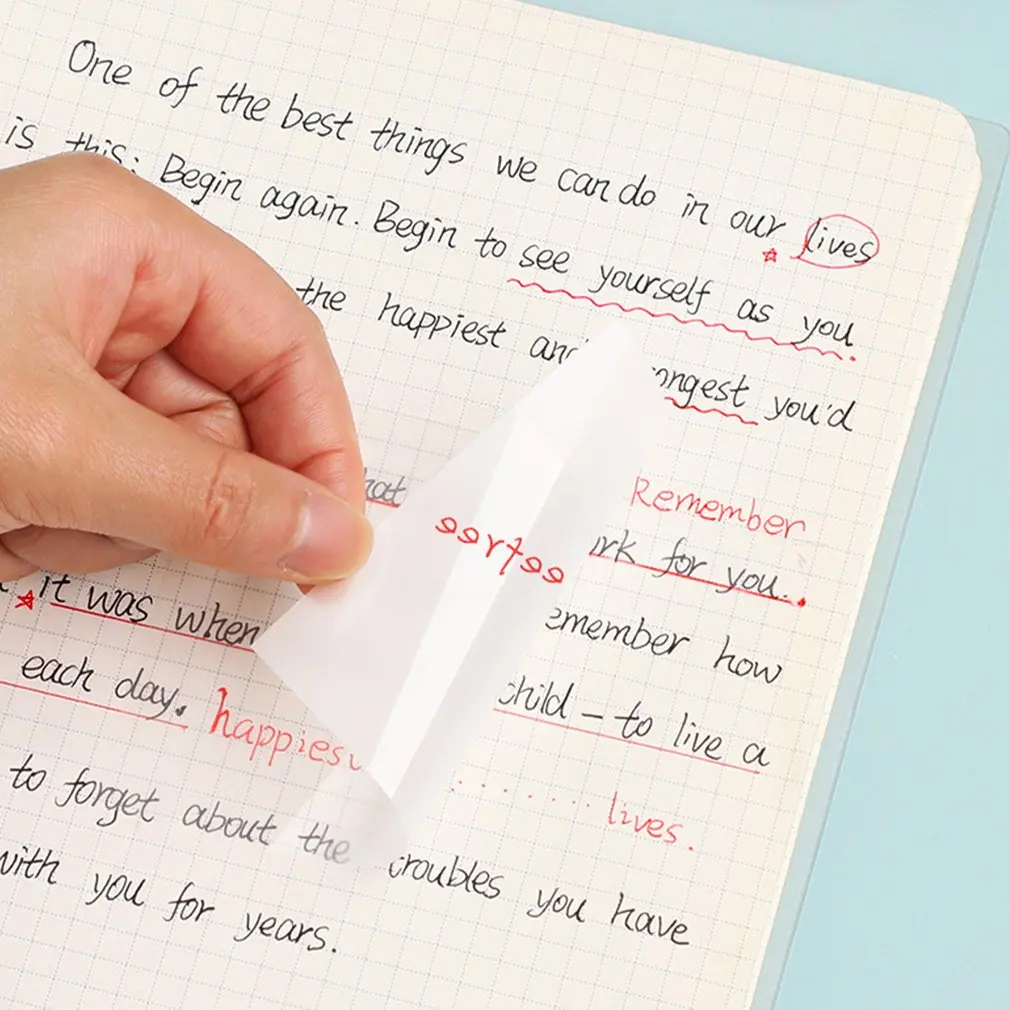 One of the best things we can do in our lives
is this: Begin again. Begin to see yourself as you
the happiest and you'd
Remember
for you.
it was when
emember how
each day. child – to live a
happies
lives.
to forget about the troubles you have
with you for years.